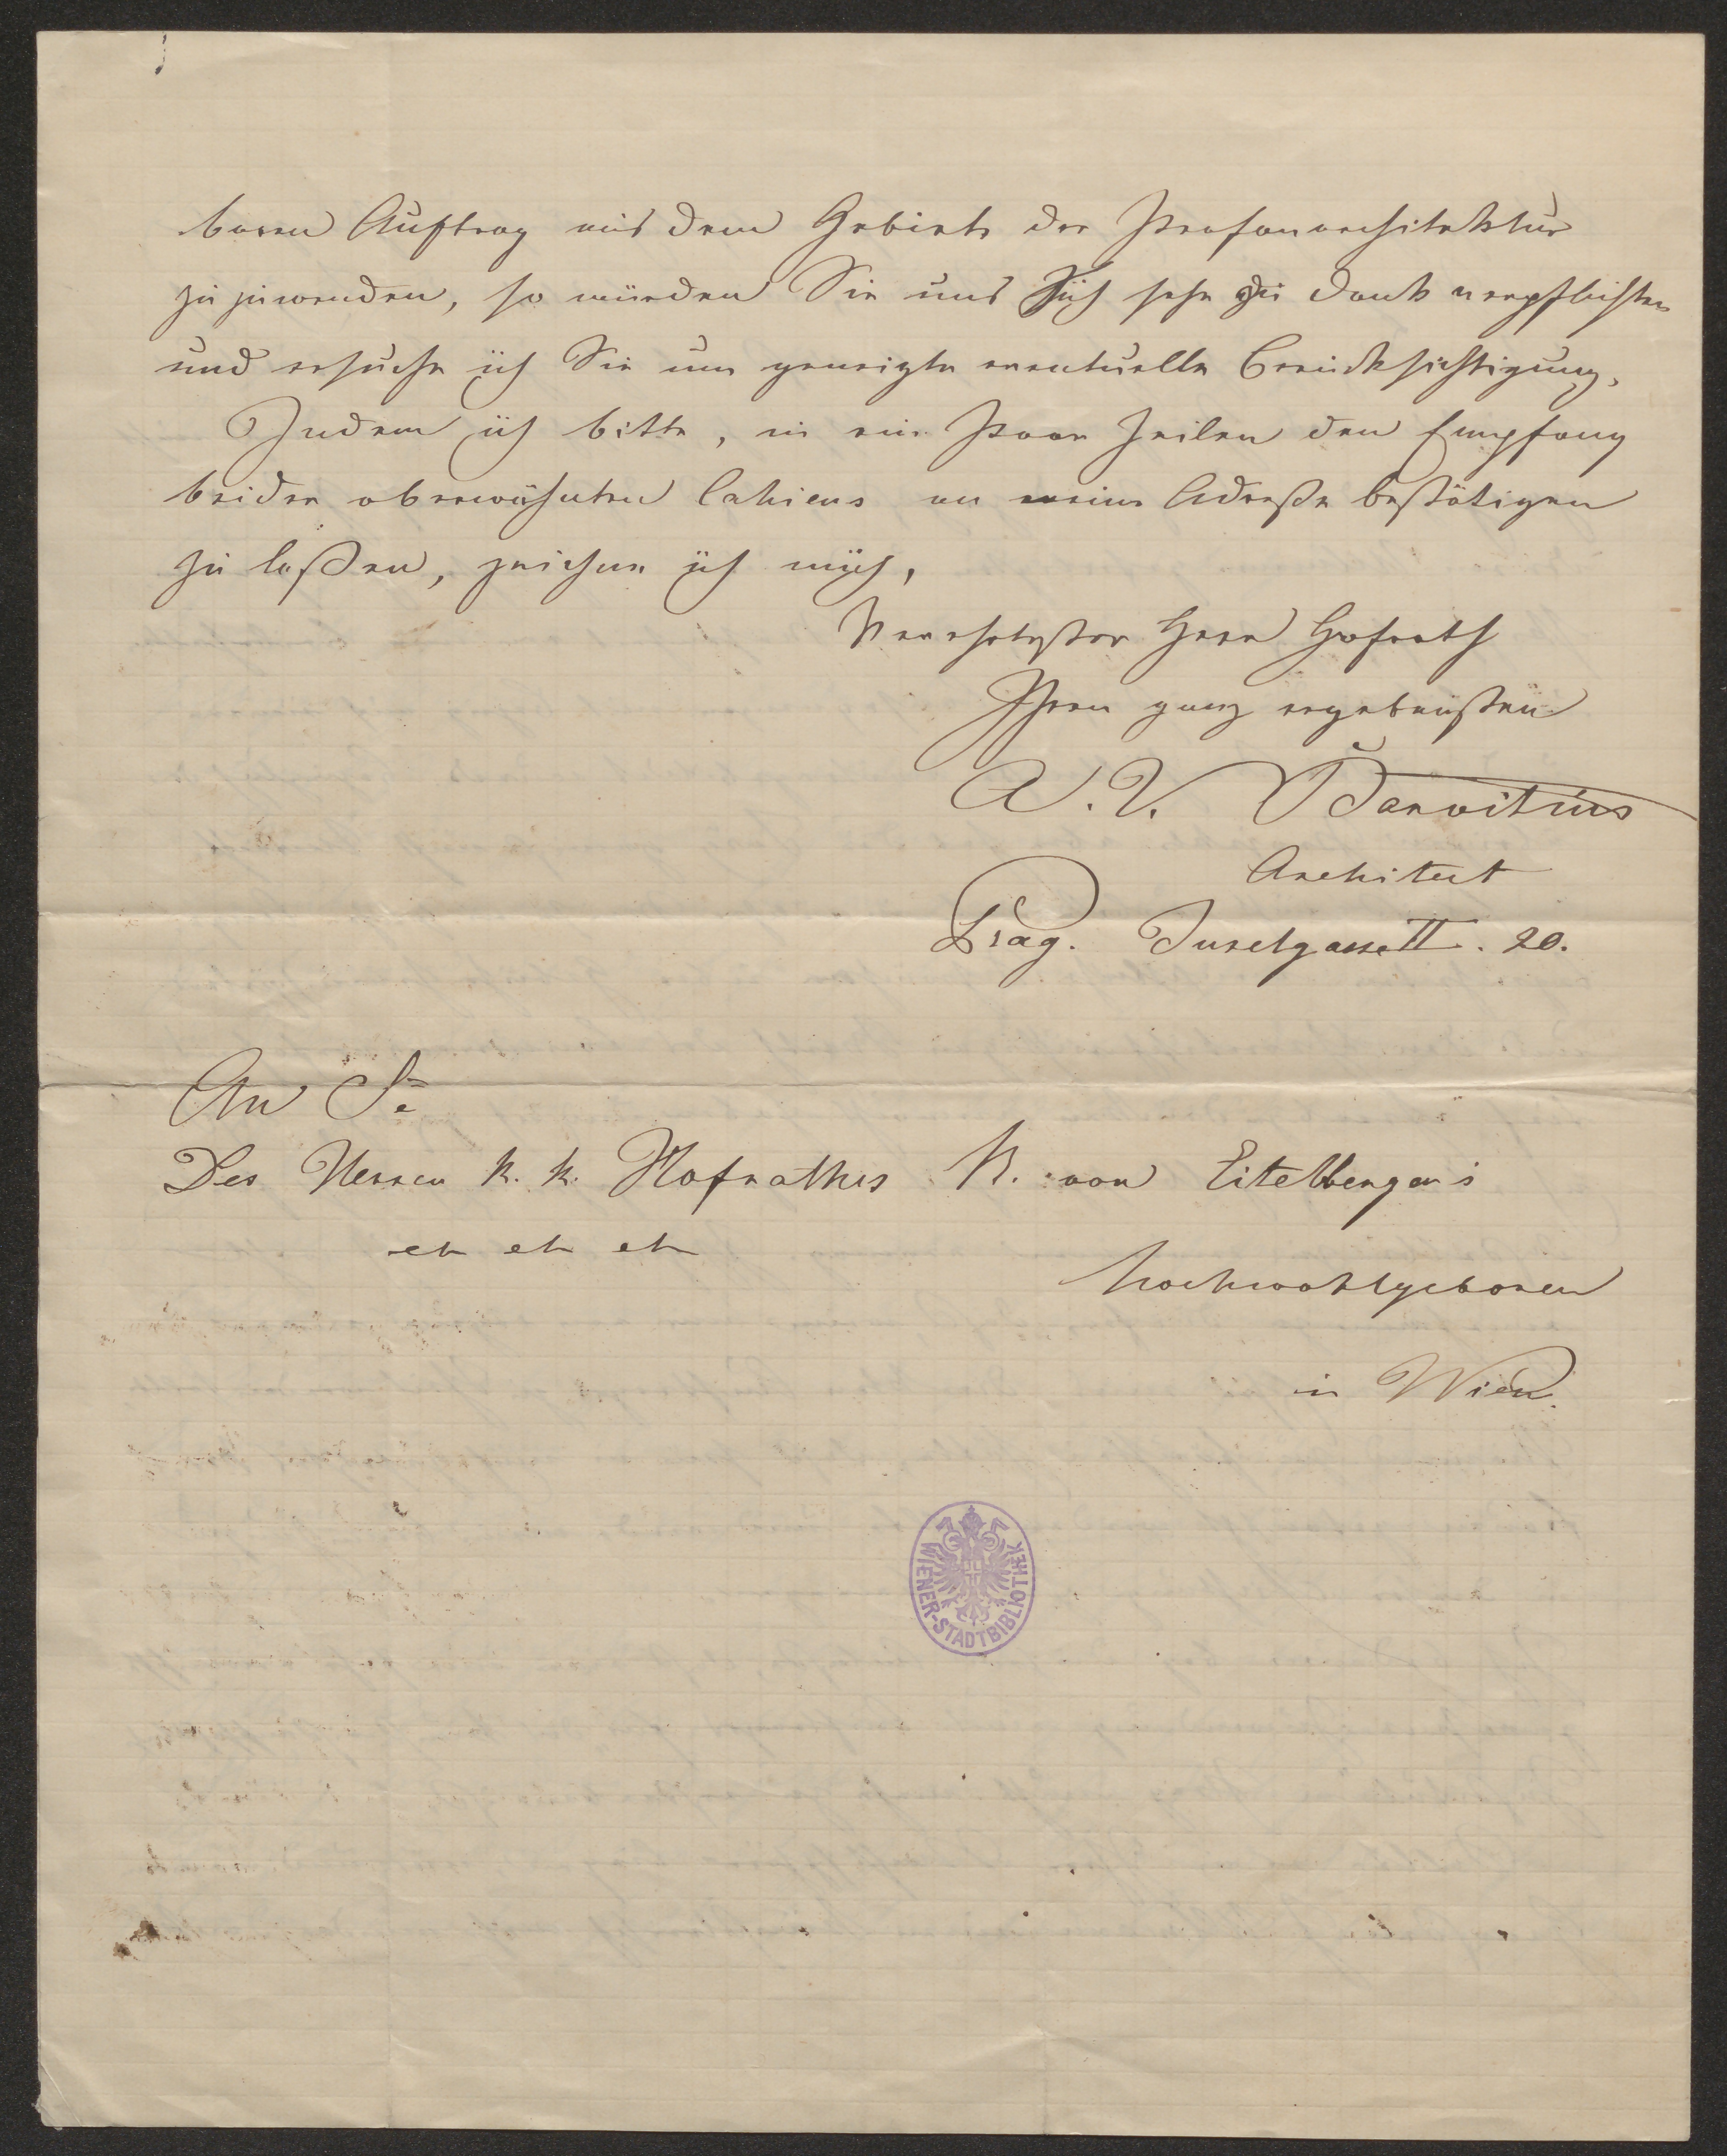 baren Auftrag aus dem Gebiete der Profanarchitektur
zuzuwenden, so würden Sie uns sich sehr zu Dank verpflichten
und ersuche ich Sie um geneigte eventuelle Berücksichtigung.
Indem ich bitte, in ein Paar Zeilen den Empfang
beider oberwähnten Cahiers an meine Adreße bestätigen
zu laßen, zeichne ich mich,
Verehrtester Herr Hofrath
Ihren ganz ergebensten
A. V. Barvitius
Architect
Prag. Inselgasse II. 20.
An Se
Des Herren k. k. Hofrathes R. von Eitelberger's
etc etc etc
Hochwohlgeboren
in Wien.
WIENER-STADTBIBLIOTHEK